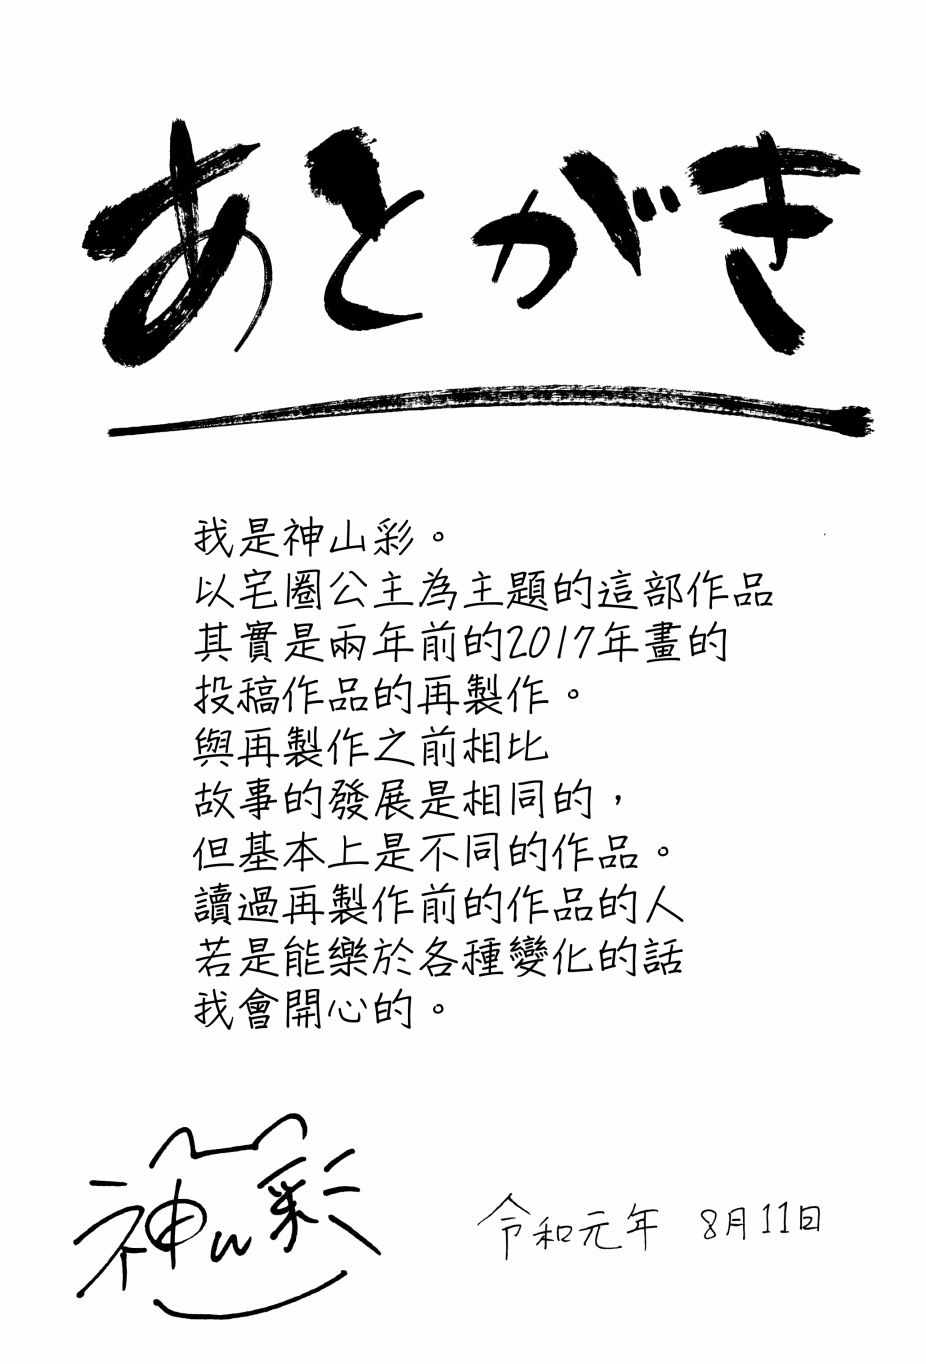 あとがき
我是神山彩。
以宅圈公主為主題的這部作品
其實是兩年前的2017年畫的
投稿作品的再製作。
與再製作之前相比
故事的發展是相同的，
但基本上是不同的作品。
讀過再製作前的作品的人
若是能樂於各種變化的話
我會開心的。
神山彩
令和元年 8月11日